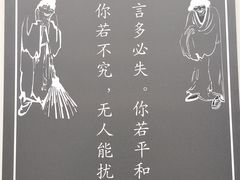 言多必失。你若平和
你若不究，无人能扰